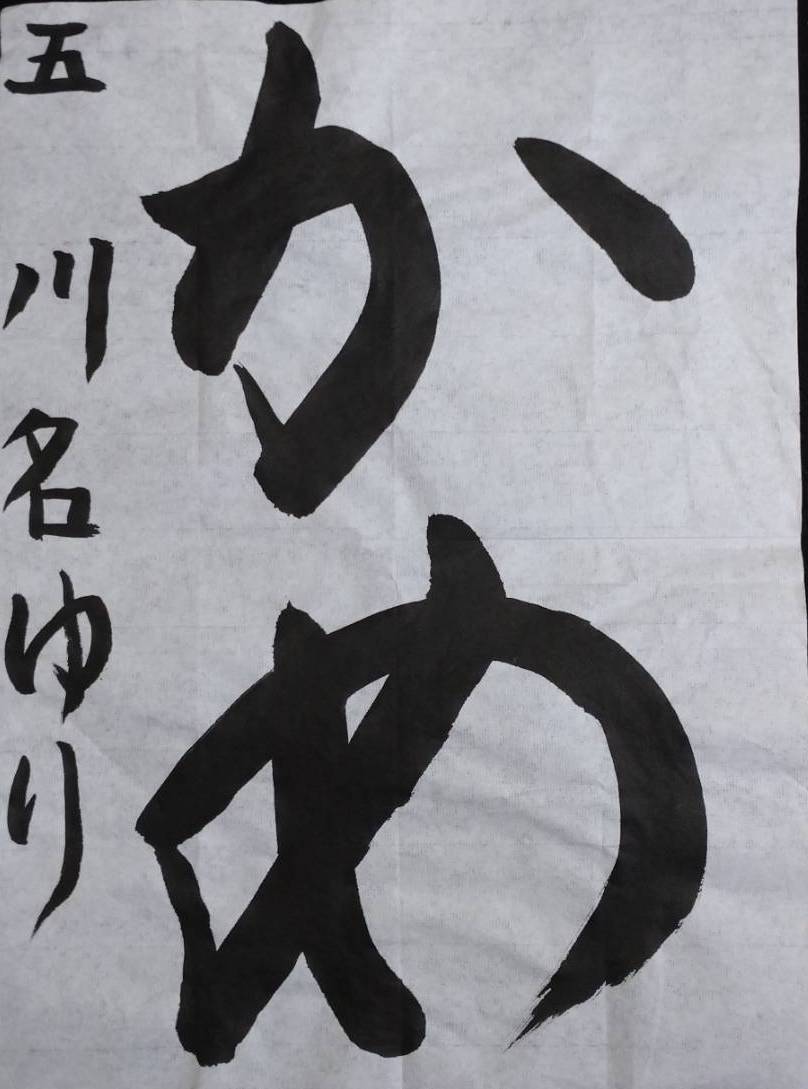 かめ
五 川名ゆり